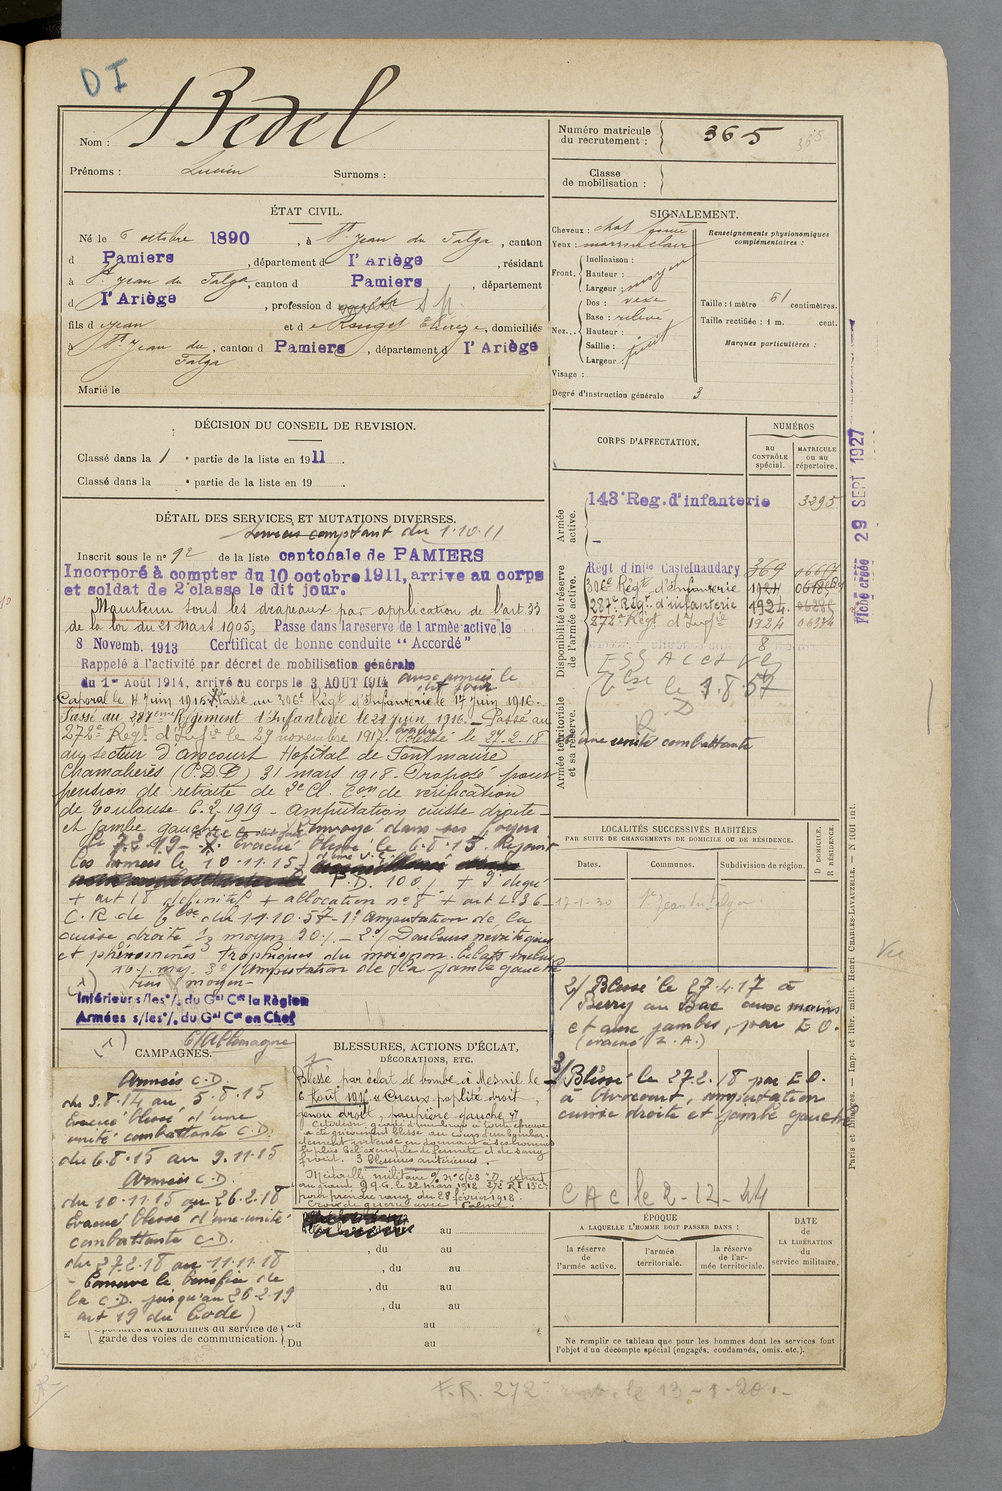 DI
Nom : Bedel
Prénoms : Lucien Surnoms :
Numéro matricule du recrutement : 365
365
Classe de mobilisation :
ÉTAT CIVIL.
Né le 6 octobre 1890, à St Jean du Falga, canton
d Pamiers, département d l'Ariège, résidant
à St Jean du Falga, canton d Pamiers, département
d l'Ariège, profession d s.p.
fils d Jean et d e Rouget Thérèze, domiciliés
à St Jean du Falga, canton d Pamiers, département d l'Ariège
Marié le
DÉCISION DU CONSEIL DE REVISION.
Classé dans la 1e partie de la liste en 1911.
Classé dans la e partie de la liste en 19
DÉTAIL DES SERVICES ET MUTATIONS DIVERSES.
Services comptant du 1.10.11
Inscrit sous le no 92 de la liste cantonale de PAMIERS
Incorporé à compter du 10 octobre 1911, arrive au corps
et soldat de 2e classe le dit jour.
Maintenu sous les drapeaux par application de l'art 33
de la loi du 21 Mars 1905. Passe dans la reserve de l'armée active le
8 Novemb. 1913 Certificat de bonne conduite "Accordé"
Rappelé à l'activité par décret de mobilisation générale
du 1er Août 1914, arrivé au corps le 3 AOUT 1914
Caporal le 4 Juin 1915. Passé au 306e Régt d'Infanterie le 17 Juin 1916.
Passé au 287eme Régiment d'Infanterie le 21 juin 1916. Passé au
272e Régt d'Infie le 29 novembre 1917. Blessé le 27.2.18
au secteur d'avocourt Hopital de Fontmaure
Chamalières (P.D.D) 31 mars 1918. Proposé pour
pension de retraite de 2e Cl. Con de vérification
de Toulouse 6.2.1919 - amputation cuisse droite
et jambe gauche. Renvoyé dans ses foyers
le 7.2.19. Evacué blessé le 6.8.15. Rejoint
les armées le 10.11.15
P.D. 100% + 9e degré
+ art 18 definitif + allocation no 8 + art L.36
C.R. de Tlse du 11.10.57 - 1o amputation de la
cuisse droite 1/3 moyen 90% - 2o/ Douleurs névritiques
et phénomènes trophiques du moignon. Eclats inclus
10% maj. 3o/ Amputation de la jambe gauche
tiers moyen -
(1)
Intérieur s/les o/. du Gal Ct la Région
Armées s/les o/. du Gal Ct en Chef
SIGNALEMENT.
Cheveux : chat foncé
Yeux : marron clair
Front. Inclinaison :
Hauteur :
Largeur : moyen
Nez. Dos : vexe
Base : relevé
Hauteur :
Saillie :
Largeur : petit
Visage :
Degré d'instruction générale 3
Renseignements physionomiques complémentaires :
Taille : 1 mètre 61 centimètres.
Taille rectifiée : 1 m. cent.
Marques particulières :
CORPS D'AFFECTATION.
NUMÉROS
AU CONTRÔLE spécial.
MATRICULE OU AU répertoire.
Armée active.
143e Reg. d'infanterie 3295
Disponibilité et réserve de l'armée active.
Régt d'Infie Castelnaudary 369
306e Régt d'Infanterie 1924
287e Régt d'infanterie 1924
272e Régt d'Infie 1924
8
Tlse le 1.8.57
P.D
Armée territoriale et sa réserve.
unité combattante
29 SEPT 1927
Fiche créée
LOCALITÉS SUCCESSIVES HABITÉES
PAR SUITE DE CHANGEMENTS DE DOMICILE OU DE RÉSIDENCE.
Dates. Communes. Subdivision de région.
D DOMICILE, R RÉSIDENCE.
17-1-30 St Jean du Falga
Vu
2/ Blessé le 27.4.17 à
Berry au Bac aux mains
et aux jambes, par E.O.
(évacué Z.A.)
3/ Blessé le 27.2.18 par E.O.
à Avocourt, amputation
cuisse droite et jambe gauche
C A C le 2-12-44
CAMPAGNES.
(1) C/Allemagne
Armées C.D.
du 3.8.14 au 5.8.15
Evacué blessé d'une
unité combattante C.D.
du 6.8.15 au 9.11.15
Armées C.D.
du 10.11.15 au 26.2.18
Evacué blessé d'une unité
combattante C.D.
du 27.2.18 au 11.11.18
- Conserve le bénéfice de
la C.D. jusqu'au 26.2.19
art 19 du Code)
garde des voies de communication.
BLESSURES, ACTIONS D'ÉCLAT,
DÉCORATIONS, ETC.
Blessé par éclat de bombe à Mesnil le
6 Août 1915 Creux poplité droit,
genou droit, paupière gauche,
3 blessures antérieures.
Médaille militaire
pour prendre rang du 28 février 1918.
Croix de guerre avec Palme.
au
, du au
, du au
, du au
, du au
Du au
Du au
ÉPOQUE
A LAQUELLE L'HOMME DOIT PASSER DANS :
la réserve de l'armée active.
l'armée territoriale.
la réserve de l'armée territoriale.
DATE DE LA LIBÉRATION du service militaire.
Ne remplir ce tableau que pour les hommes dont les services font
l'objet d'un décompte spécial (engagés, condamnés, omis, etc.).
Paris et Limoges. — Imp. et libr. milit. Henri CHARLES-LAVAUZELLE. — N 1001 int.
F.R. 272e le 13-1-20.